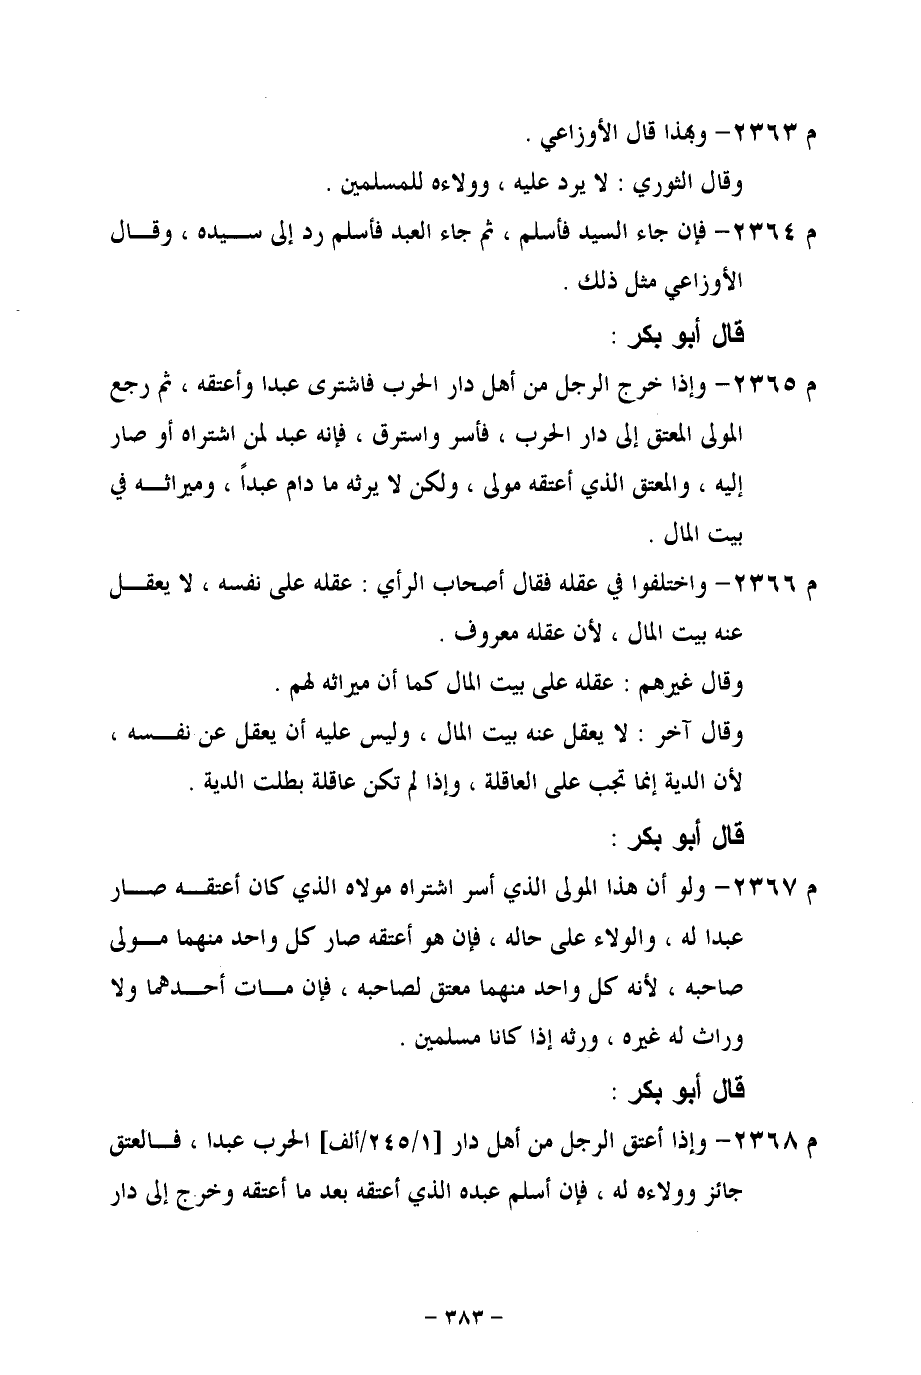 م ٢٣٦٣- وبهذا قال الأوزاعي .
وقال الثوري : لا يرد عليه ، وولاءه للمسلمين .
م ٢٣٦٤- فإن جاء السيد فأسلم ، ثم جاء العبد فأسلم رد إلى سـيده ، وقـال
الأوزاعي مثل ذلك .
قال أبو بكر :
م ٢٣٦٥- وإذا خرج الرجل من أهل دار الحرب فاشترى عبدا وأعتقه ، ثم رجع
المولى المعتق إلى دار الحرب ، فأسر واسترق ، فإنه عبد لمن اشتراه أو صار
إليه ، والمعتق الذي أعتقه مولى ، ولكن لا يرثه ما دام عبداً ، وميراثـه في
بيت المال .
م ٢٣٦٦- واختلفوا في عقله فقال أصحاب الرأي : عقله على نفسه ، لا يعقـل
عنه بيت المال ، لأن عقله معروف .
وقال غيرهم : عقله على بيت المال كما أن ميراثه لهم .
وقال آخر : لا يعقل عنه بيت المال ، وليس عليه أن يعقل عن نفـسه ،
لأن الدية إنما تجب على العاقلة ، وإذا لم تكن عاقلة بطلت الدية .
قال أبو بكر :
م ٢٣٦٧- ولو أن هذا المولى الذي أسر اشتراه مولاه الذي كان أعتقـه صـار
عبدا له ، والولاء على حاله ، فإن هو أعتقه صار كل واحد منهما مـولى
صاحبه ، لأنه كل واحد منهما معتق لصاحبه ، فإن مـات أحـدهما ولا
وراث له غيره ، ورثه إذا كانا مسلمين .
قال أبو بكر :
م ٢٣٦٨- وإذا أعتق الرجل من أهل دار [٢٤٥/١/ألف] الحرب عبدا ، فـالعتق
جائز وولاءه له ، فإن أسلم عبده الذي أعتقه بعد ما أعتقه وخرج إلى دار
- ٣٨٣ -